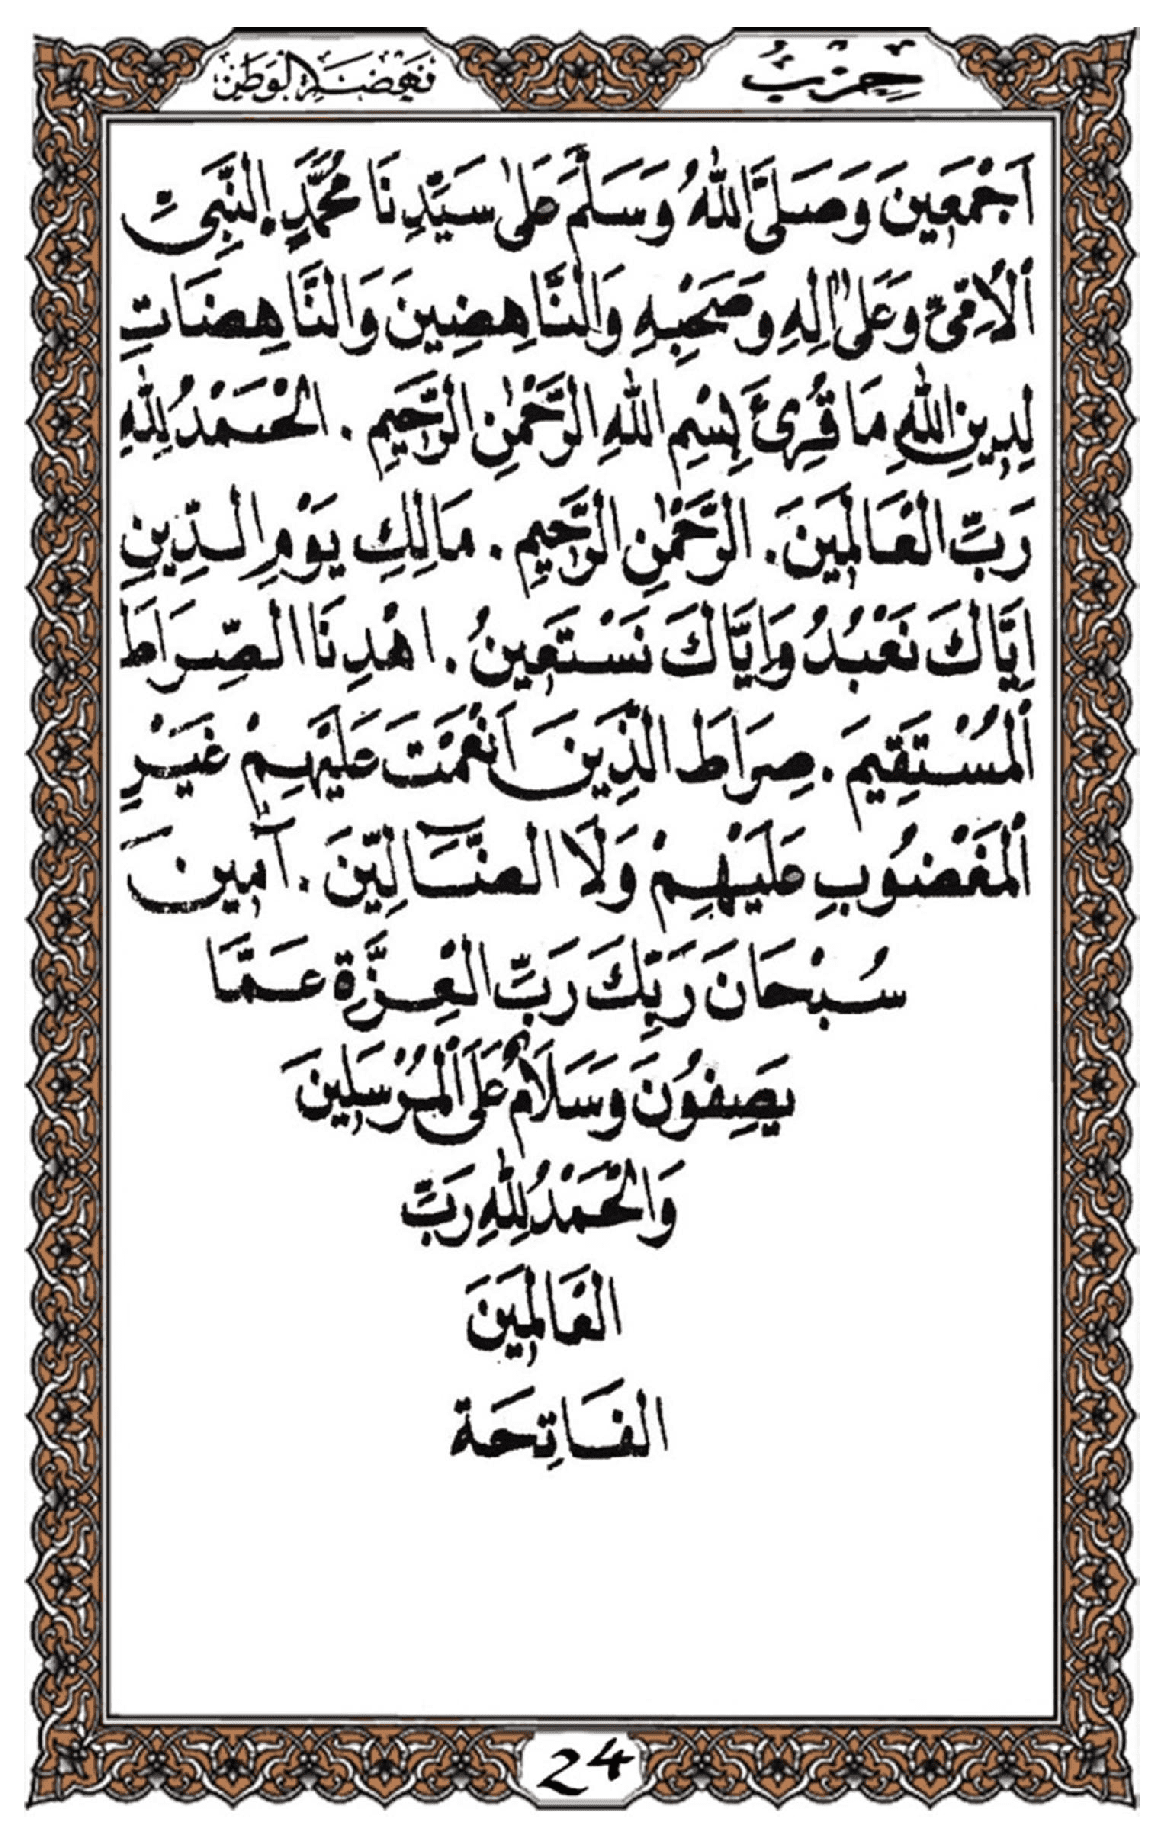 حِزْبُ نَهْضَةِ الْوَطَنِ
اَجْمَعِينَ وَصَلَّى اللهُ وَسَلَّمَ عَلَى سَيِّدِنَا مُحَمَّدٍ اِلنَّبِيِّ
اْلاُمِّيِّ وَعَلَى اٰلِهِ وَصَحْبِهِ وَالنَّاهِضِينَ وَالنَّاهِضَاتِ
لِدِينِ اللهِ مَا قُرِئَ بِسْمِ اللهِ الرَّحْمٰنِ الرَّحِيمِ . الْحَمْدُ لِلّٰهِ
رَبِّ الْعَالَمِينَ . الرَّحْمٰنِ الرَّحِيمِ . مَالِكِ يَوْمِ الدِّينِ
اِيَّاكَ نَعْبُدُ وَاِيَّاكَ نَسْتَعِينُ . اهْدِنَا الصِّرَاطَ
الْمُسْتَقِيمَ . صِرَاطَ الَّذِينَ اَنْعَمْتَ عَلَيْهِمْ غَيْرِ
الْمَغْضُوبِ عَلَيْهِمْ وَلَا الضَّآلِّينَ . آمِينَ
سُبْحَانَ رَبِّكَ رَبِّ الْعِزَّةِ عَمَّا
يَصِفُونَ وَسَلَامٌ عَلَى الْمُرْسَلِينَ
وَالْحَمْدُ لِلّٰهِ رَبِّ
الْعَالَمِينَ
الْفَاتِحَة
24